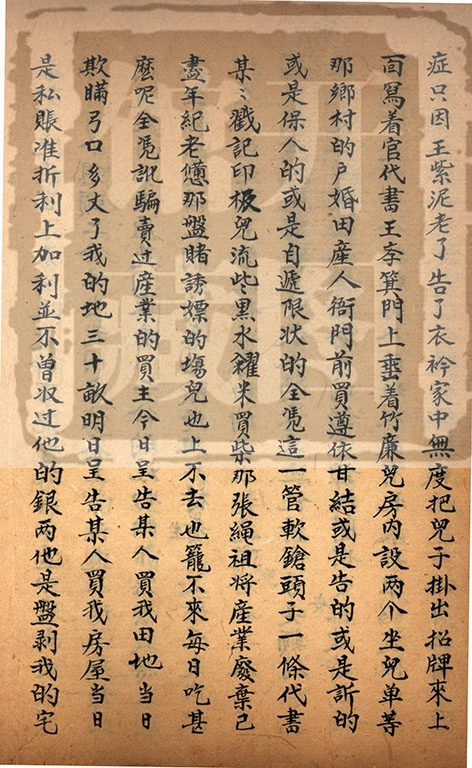 症只因王紫泥老了告了衣衿家中無度把兒子掛出招牌來上
面寫着官代書王李箕門上垂着竹廉兒房内設两个坐兒单等
那鄉村的户婚田産人衙門前買遵依甘結或是告的或是訴的
或是保人的或是自遞限状的全凴這一管軟鎗頭子一條代書
某〻戳記印板兒流些黑水糴米買柴那張繩祖将産業廢棄已
盡年紀老憊那盤賭誘嫖的塲兒也上不去也籠不來每日吃甚
麽呢全凴訛騙賣过産業的買主今日呈告某人買我田地當日
欺瞞弓口多丈了我的地三十畝明日呈告某人買我房屋當日
是私賬准折利上加利並不曾収过他的銀两他是盤剥我的宅